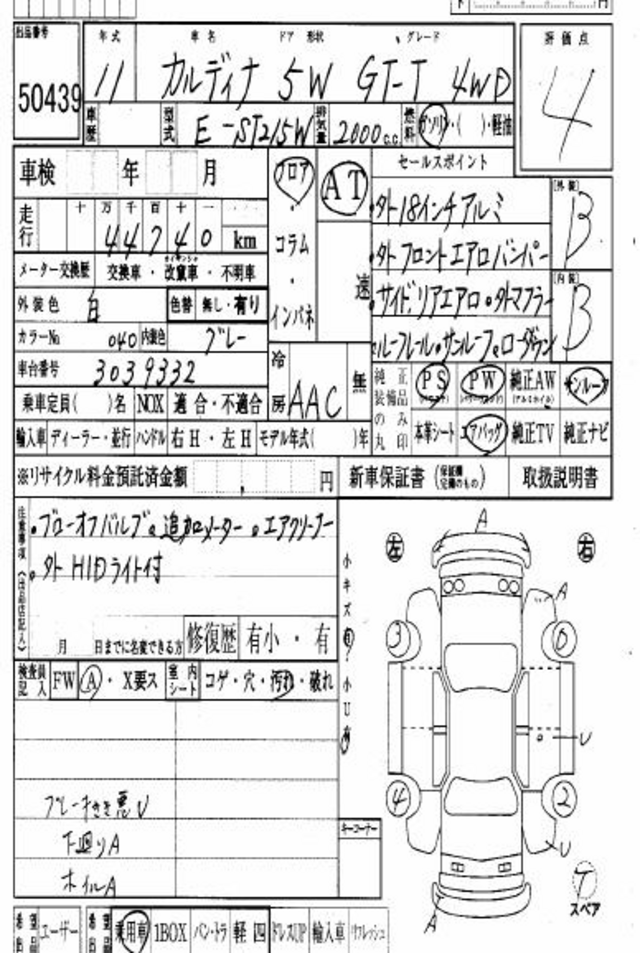 出品番号 年式 車名 ドア 形状 グレード 評価点
50439 11 カルディナ 5W GT-T 4WD 4
車歴 型式 E-ST215W 排気量 2000c.c. 燃料 ガソリン・( )・軽油
車検 年 月 フロア AT セールスポイント
走行 十 万 千 百 十 一 ・外18インチアルミ 外装 B
44740 km コラム ・外フロントエアロバンパー
メーター交換歴 交換車・改竄車・不明車 速 ・サイド、リアエアロ・外マフラー 内装 B
外装色 白 色替 無し・有り インパネ ルーフレール・サンルーフ・ローダウン
カラーNo 040 内装色 グレー
車台番号 3039332 冷房 AAC 無 純正装備品のみ丸印 PS PW 純正AW サンルーフ
乗車定員( )名 NOX 適合・不適合 本革シート エアバッグ 純正TV 純正ナビ
輸入車 ディーラー・並行 ハンドル 右H・左H モデル年式( )年
※リサイクル料金預託済金額 円 新車保証書 取扱説明書
注意事項(出品店記入) ・ブローオフバルブ・追加メーター・エアクリーナー
・外HIDライト付
月 日までに名変できる方 修復歴 有小・有
小キズ有・小U有
検査員記入 FW A・X要ス 室内シート コゲ・穴・汚れ・破れ
ブレーキきき悪U
下廻りA
ホイルA
キーコーナー
左 右
A
A
3 6
U
4 2
U
A
T
スペア
希望出品 ユーザー 希望出品 乗用車 1BOX バン・トラ 軽四 ドレスUP 輸入車 リフレッシュ